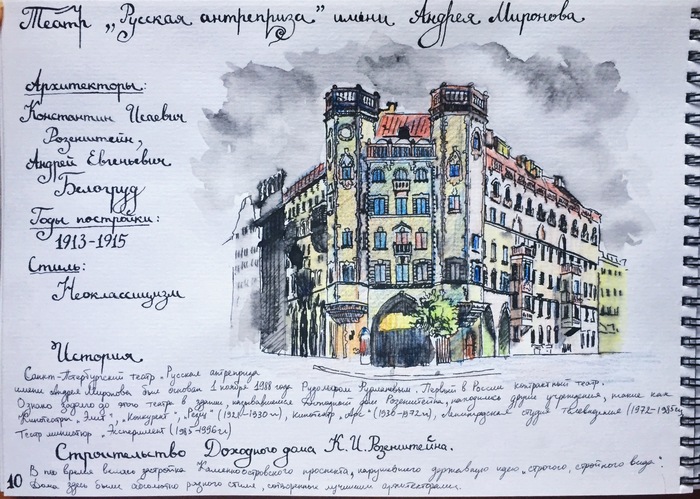 Театр „Русская антреприза" имени Андрея Миронова
Архитекторы:
Константин Исаевич
Розенштейн,
Андрей Евгеньевич
Белогруд
Годы постройки:
1913-1915
Стиль:
Неоклассицизм
История
Санкт-Петербургский театр „Русская антреприза
имени Андрея Миронова" был основан 1 ноября 1988 года Рудольфом Фурмановым. Первый в России контрактный театр.
Однако задолго до этого театра в здании, называвшемся Доходный дом Розенштейна, находились другие учреждения, такие как
Кинотеатры „Элит", „Конкурент", „Резец" (1929-1930гг), кинотеатр „Арс" (1930-1972гг), Ленинградская студия Телевидения (1972-1985гг),
Театр миниатюр „Эксперимент" (1985-1996гг)
Строительство Доходного дома К.И. Розенштейна.
В то время велась застройка Каменноостровского проспекта, нарушившего державную идею „строгого, стройного вида".
Дома здесь были абсолютно разного стиля, сотворенные лучшими архитекторами.
10